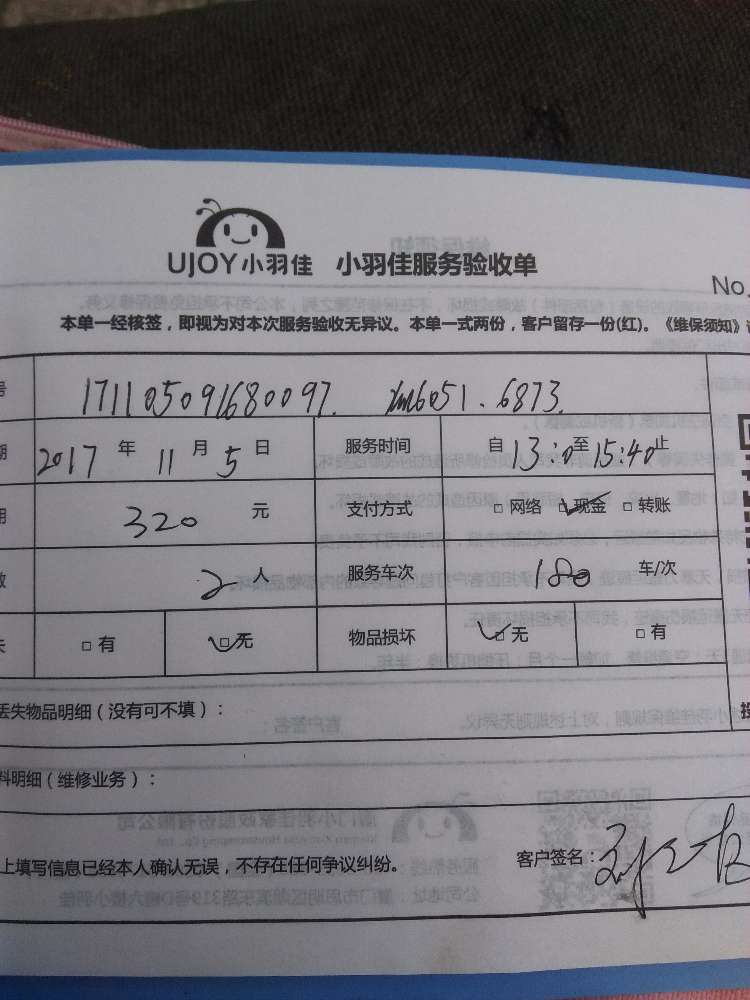 UJOY小羽佳 小羽佳服务验收单
No.
本单一经核签，即视为对本次服务验收无异议。本单一式两份，客户留存一份(红)。《维保须知》
号 171105091680097. 6051.6873.
期 2017 年 11 月 5 日 服务时间 自 13:0 至 15:40 止
用 320 元 支付方式 □ 网络 □ 现金 □ 转账
数 2 人 服务车次 180 车/次
失 □ 有 □ 无 物品损坏 □ 无 □ 有
丢失物品明细（没有可不填）：
料明细（维修业务）：
上填写信息已经本人确认无误，不存在任何争议纠纷。 客户签名：